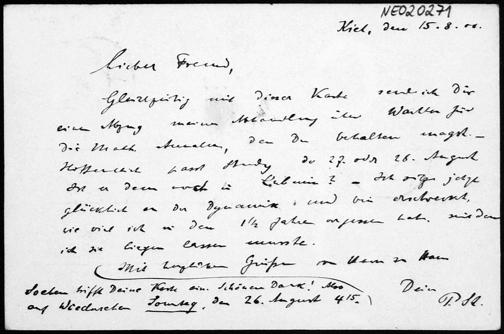 NE020271
Kiel, den 15. 8. 00.
Lieber Freund,
Gleichzeitig mit dieser Karte sende ich Dir
einen Abzug meiner Abhandlung über für
die Math. Annalen, den Du behalten magst. –
Hoffentlich passt Study der 27. oder 28. August
Ist er denn noch in ? – Ich sitze jetzt
glücklich an der Dynamik, und bin erschreckt,
wie viel ich in den 1½ Jahren vergessen habe, seitdem
ich sie liegen lassen musste.
Mit herzlichen Grüßen von Haus zu Haus
Dein
P. St.
Soeben trifft Deine Karte ein. Schönen Dank! Also
auf Wiedersehen Sonntag, den 26. August 4 15.